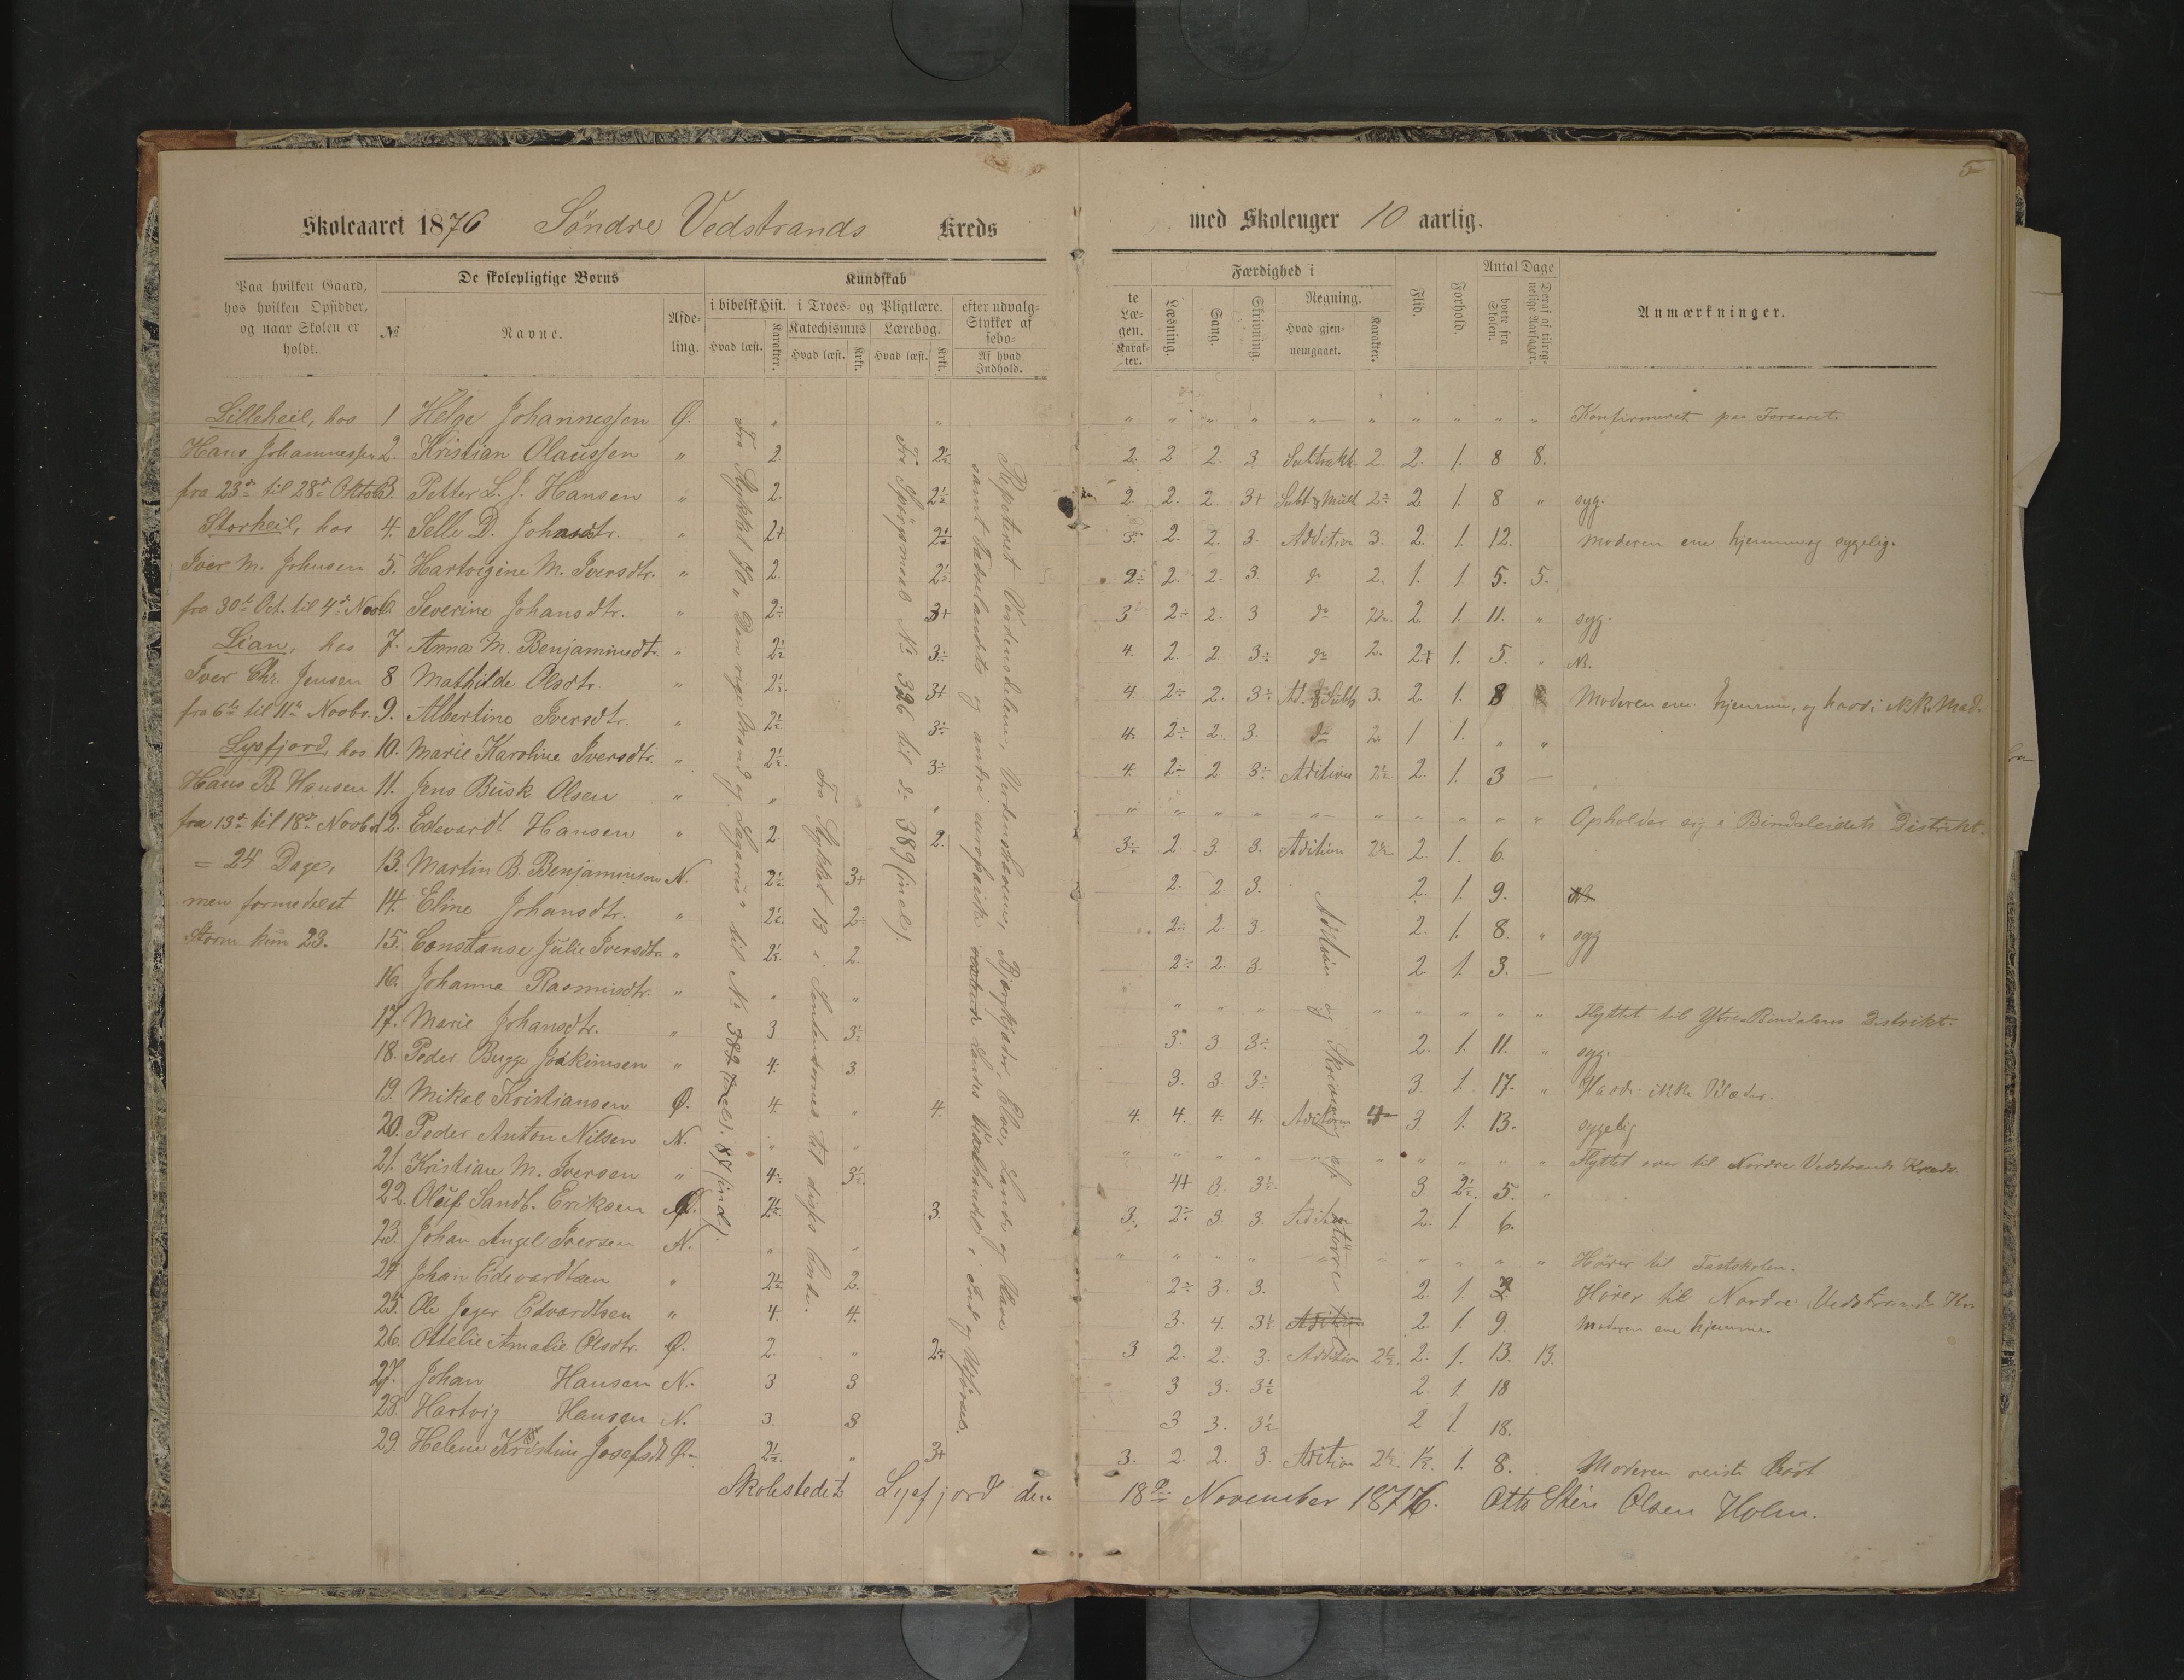 5
Skoleaaret 1876 Söndre Vedstrands Kreds med Skoleuger 10 aarlig.
Paa hvilken Gaard, hos hvilken Opsidder, og naar Skolen er holdt.
De skolepligtige Børns
№
Navne.
Afdeling.
Kundskab
i bibelsk Hist.
Hvad læst.
Karakter.
i Troes- og Pligtlære.
Katechismus
Hvad læst.
Krkt.
Lærebog.
Hvad læst.
Krkt.
efter udvalg-
Stykker af
sebo-
Af hvad Indhold.
te
Læ-
gen.
Karakter.
Færdighed i
Læsning.
Sang.
Skrivning.
Regning.
Hvad gjennemgaaet.
Karakter.
Flid.
Forhold.
Antal Dage
borte fra Skolen.
Deraf af tilregnelige Aarsager.
Anmærkninger.
Lilleheil, hos 1 Helge Johannessen Ø. " " " " " " " " " " " " Konfirmeret paa Foraaret.
Hans Johannessen 2. Kristian Olaussen " 2. 2½ 2. 2 2. 3 Subtrakt. 2. 2. 1. 8. 8.
fra 23de til 28de Oktob. 3. Petter L. J. Hansen " 2. 2½ 2 2. 2. 3+ Subt. & Mult 2÷ 2 1. 8 " syg.
Storheil, hos 4. Selle D. Johnsdtr. " 2+ 2½ 3. 2. 2. 3. Addition 3. 2. 1. 12. Moderen ene hjemme og sygelig.
Iver M. Johnsen 5. Hartvigine M. Iversdtr. " 2. 2½ 2÷ 2. 2. 3. do 2. 1. 1 5. 5.
fra 30te Oct. til 4de Novb. 6. Severine Johansdtr. " 2÷ 3+ 3 2÷ 2. 3 do 2 1. 11. " syg.
Lian, hos 7. Anna M. Benjaminsdt. " 2½ 3÷ 4. 2 2 3÷ do 2. 2+ 1. 5. "
Iver Chr. Jensen 8 Mathilde Olsdtr. " 2½. 3+ 4 2÷ 2. 3÷ Ad. & Subt 3. 2 1. 8 Moderen ene hjemme, og havde ikke Mad.
fra 6te til 11te Novbr. 9. Albertine Iversdtr. " 2½ 3÷ 4. 2÷ 2. 3. do 2 1 1. " "
Lysfjord, hos 10. Marie Karoline Iversdtr. " 2½. 3÷ 4. 2÷ 2 3÷ Adition 2½ 2. 1. 3 —
Hans R. Hansen 11. Jens Busk Olsen " " " " " " " " " " " " Opholder sig i Bindaleidets Distrikt.
fra 13de til 18de Novb. 12. Edevardt Hansen " 2 2. 3÷ 2. 3. 3. Adition 2½ 2. 1. 6.
= 24 Dage, 13. Martin B. Benjaminsen N. 2½ 3+ 2. 2 3. 2. 1. 9.
men formedelst 14. Eline Johansdtr. " 2½. 2÷ 2÷ 2. 3. 2. 1. 8. " syg
Storm kun 23. 15. Constanse Julie Iversdtr. " 2½. 2. 2÷ 2. 3. 2. 1. 3. —
16. Johanna Rasmusdtr. " " " " " " " " " " " Flyttet til Ytre Bindalens Distrikt.
17. Marie Johansdtr. " 3 3½ 3. 3. 3÷ 2. 1. 11. " syg.
18. Peder Bugge Joakimsen " 4. 3. 3. 3. 3÷ 3. 1. 17. " Havde ikke Klæder.
19. Mikal Kristiansen Ø. 4. " 4. 4. 4. 4. 4. Adition 4 3 1. 13. sygelig
20. Peder Anton Nilsen N. " " " " " " " " " " " Flyttet over til Nordre Vedstrands Kreds.
21. Kristian M. Iversen " 4÷ 3½. 4+ 3. 3½. 3. 2½. 5. "
22. Oluf Sandb. Eriksen Ø. 2½ 3. 3. 2÷ 3 3. Adition 2. 1. 6.
23. Johan Angel Iversen N. " " " " " " " " " " Hörer til Fastskolen.
24 Johan Edevardtsen " 2½ 2. 2÷ 3. 3. 2. 1. Hörer til Nordre Vedstrands
25. Ole Jager Edvardtsen " 4. 4. 3. 4. 3+ Adition 2. 1. 9. Moderen ene hjemme.
26. Ottelie Amalie Olsdtr. Ø. 2. " 2½ 3 2. 2. 3. Addition 2½. 2. 1. 13. 13.
27. Johan Hansen N. 3 3 3 3. 3½ 2. 1. 18
28. Hartvig Hansen N. 3. 3 3 3. 3½ 2 1. 18.
29. Helene Kristine Josefsdt Ø. 2½. " 3+ 3. 2. 2. 3. Adition 2½. 1½. 1. 8. Moderen reiste bort
Fra Stykket 70 "Den rige Mand og Lazarus" til № 382 87 (incl).
Fra Stykket 13 i Sendendernes til disses Ende.
Fra Spörgsmaal № 326 til do 389 (incl)
Repeteret Verdensdelene, Verdenshavene, Bjergkjæder, Elve, Lande og Have
samt Fædrelandets og andre europæiske Landes i Ind og Udförsel.
Adition og Skrivning af större Tal
Skolestedet Lysfjord den 18de November 1876. Otto Stein Olsen Holm.